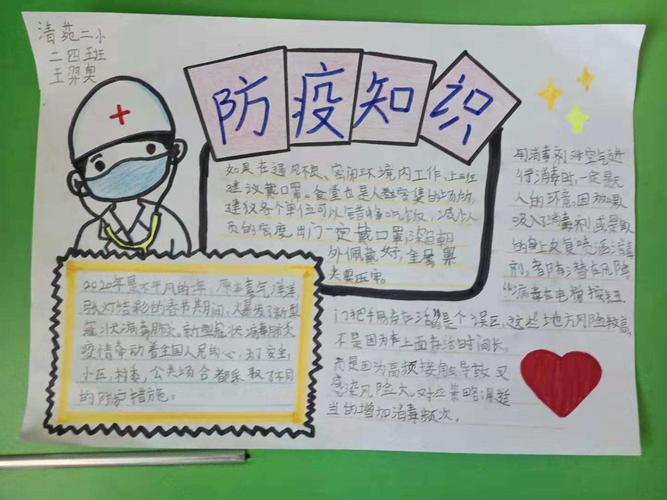 清苑二小
二四班
王羿奥
防疫知识
如果在通风不良、密闭环境内工作,上班
建议戴口罩。食堂也是人群密集的场所,
建议各个单位可以错峰吃饭,减少人
员的密度出门一定戴口罩深色朝
外佩戴好,金属条
夹要压牢。
2020年是不平凡的一年,原本喜气洋洋,
张灯结彩的春节期间,爆发了新型
冠状病毒肺炎。新型冠状病毒肺炎
疫情牵动着全国人民的心,为了安全,
小区,村委,公共场合都采取了不同
的防护措施。
用消毒剂对空气进
行消毒时,一定是无
人的环境,因为如果
吸入了消毒剂,或是频
的身上反复喷洒消毒
剂,都有潜在风险。
"病毒在电梯按钮
门把手易存活"是个误区,这些地方风险较高,
不是因为在上面存活时间长,
而是因为高频接触导致
感染风险大。对应策略
当的增加消毒频次。